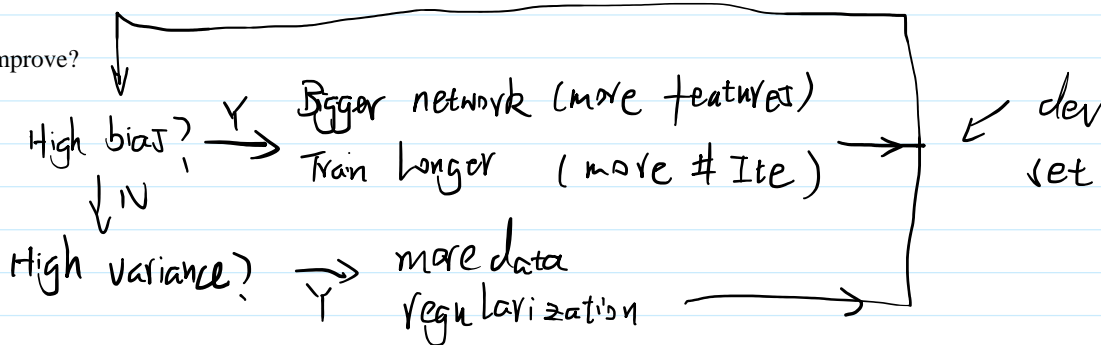 mprove?
High bias? Y Bigger network (more features) dev
Train Longer (more # Ite) set
N
High variance? Y more data
regularization